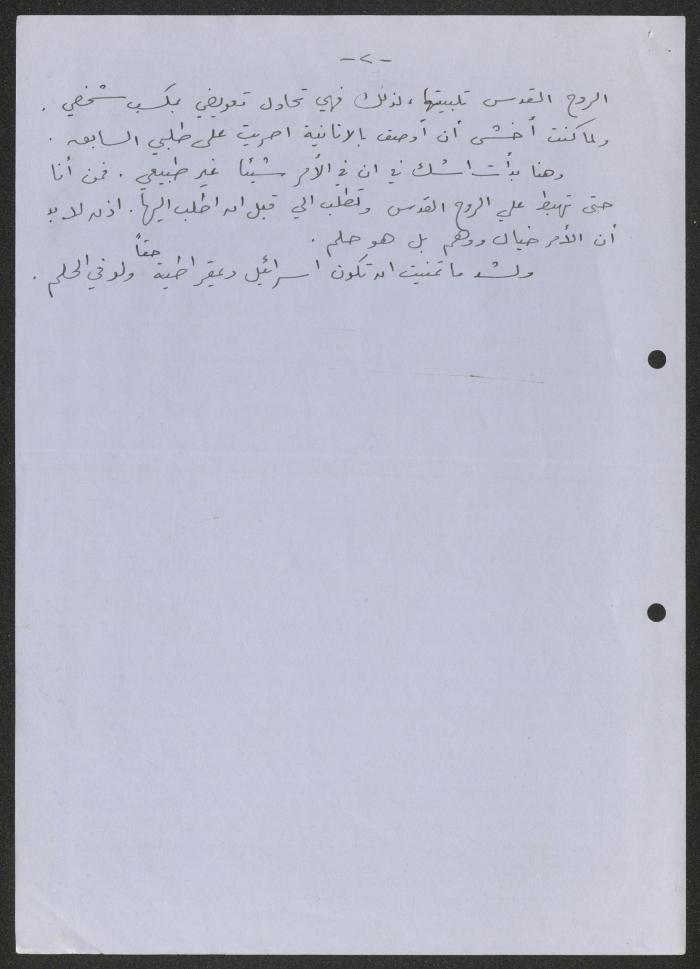 -٢-
الروح القدس تلبيتها، لذلك فهي تحاول تعويضي بمكسب شخصي .
ولما كنت أخشى أن أوصف بالانانية اصريت على طلبي السابق .
وهنا بدأت اشك في ان في الأمر شيئا غير طبيعي . فمن أنا
حتى تهبط علي الروح القدس وتطلب الي قبل ان اطلب اليها . اذن لا بد
أن الأمر خيال ووهم بل هو حلم .
ولشد ما تمنيت ان تكون اسرائيل ديمقراطية حقاً ولو في الحلم .